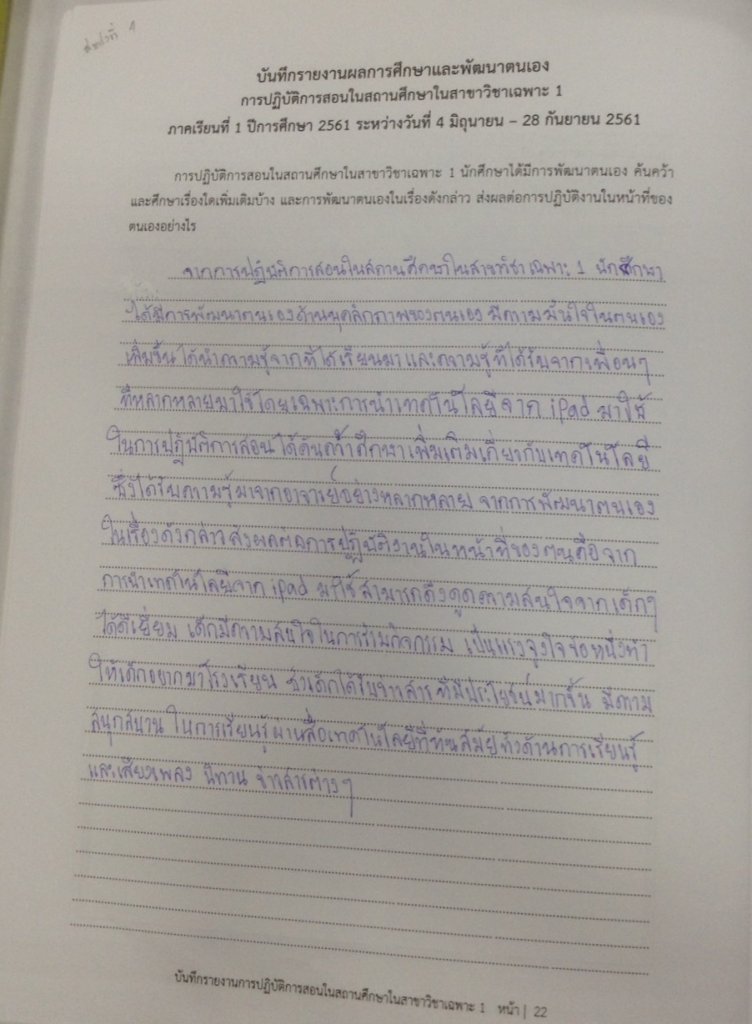 บันทึกรายงานผลการศึกษาและพัฒนาตนเอง
การปฏิบัติการสอนในสถานศึกษาในสาขาวิชาเฉพาะ 1
ภาคเรียนที่ 1 ปีการศึกษา 2561 ระหว่างวันที่ 4 มิถุนายน – 28 กันยายน 2561
การปฏิบัติการสอนในสถานศึกษาในสาขาวิชาเฉพาะ 1 นักศึกษาได้มีการพัฒนาตนเอง ค้นคว้า
และศึกษาเรื่องใดเพิ่มเติมบ้าง และการพัฒนาตนเองในเรื่องดังกล่าว ส่งผลต่อการปฏิบัติงานในหน้าที่ของ
ตนเองอย่างไร
จากการปฏิบัติการสอนในสถานศึกษาในสาขาวิชาเฉพาะ 1 นักศึกษา
ได้มีการพัฒนาตนเองด้านบุคลิกภาพของตนเอง มีความมั่นใจในตนเอง
เพิ่มขึ้น ได้นำความรู้จากที่ได้เรียนมา และความรู้ที่ได้รับจากเพื่อนๆ
ที่หลากหลายมาใช้โดยเฉพาะการนำเทคโนโลยีจาก ipad มาใช้
ในการปฏิบัติการสอน ได้ค้นคว้าศึกษาเพิ่มเติมเกี่ยวกับเทคโนโลยี
ซึ่งได้รับความรู้มาจากอาจารย์อย่างหลากหลาย จากการพัฒนาตนเอง
ในเรื่องดังกล่าวส่งผลต่อการปฏิบัติงานในหน้าที่ของตนคือจาก
การนำเทคโนโลยีจาก ipad มาใช้ สามารถดึงดูดความสนใจจากเด็กๆ
ได้ดีเยี่ยม เด็กมีความสนใจในการร่วมกิจกรรม เป็นแรงจูงใจข้อหนึ่งทำ
ให้เด็กอยากมาโรงเรียน เด็กได้รับข่าวสารที่มีประโยชน์มากขึ้น มีความ
สนุกสนาน ในการเรียนรู้ผ่านสื่อเทคโนโลยีที่ทันสมัย ด้านการเรียนรู้
และเสียงเพลง นิทาน ข่าวสารต่างๆ
บันทึกรายงานการปฏิบัติการสอนในสถานศึกษาในสาขาวิชาเฉพาะ 1 หน้า | 22